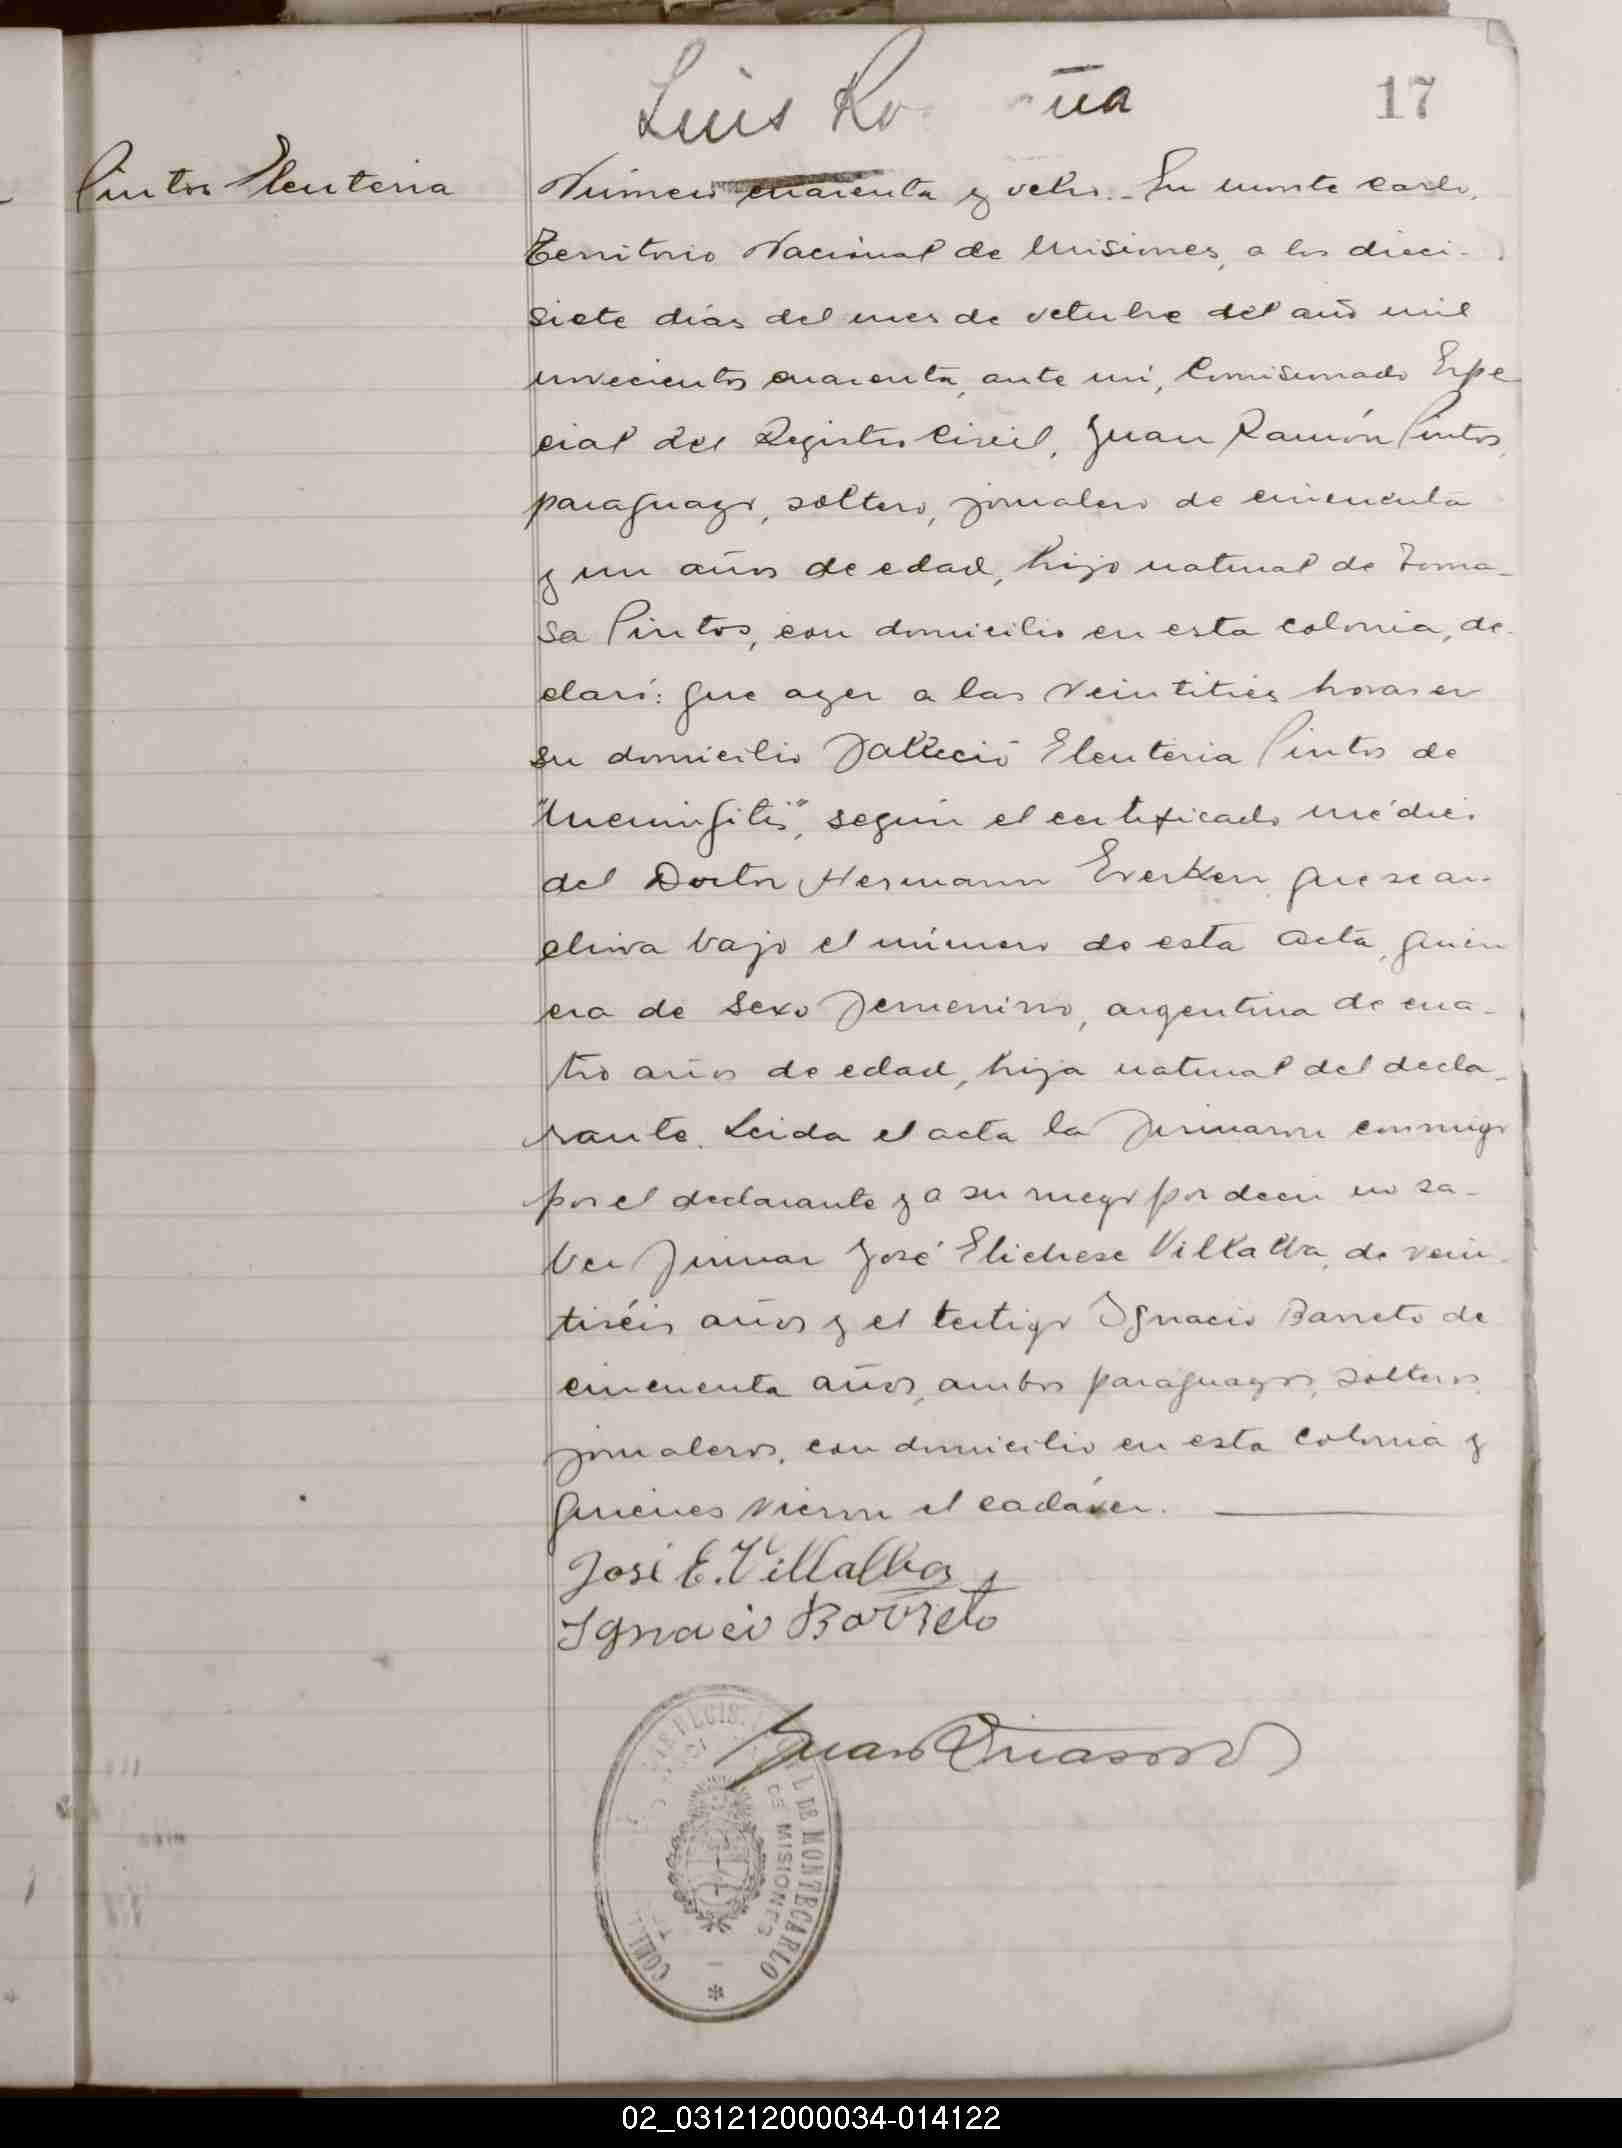 Luis Ro ña
17
Pintos Eleuteria
Número cuarenta y ocho.- En monte carlo,
Territorio Nacional de Misiones, a los dieci-
siete días del mes de octubre del año mil
novecientos cuarenta, ante mí, Comisionado Espe
cial del Registro Civil, Juan Ramón Pintos,
paraguayo, soltero, jornalero de cincuenta
y un años de edad, hijo natural de Toma-
sa Pintos, con domicilio en esta colonia, de-
claró: que ayer a las veintitrés horas en
su domicilio falleció Eleuteria Pintos de
"Meningitis", según el certificado médico
del Doctor Hermann Everken que se ar-
chiva bajo el número de esta acta, quien
era de sexo femenino, argentina de cua-
tro años de edad, hija natural del decla-
rante. Leida el acta la firmaron conmigo
por el declarante y a su ruego por decir no sa-
ber firmar José Elichese Villalba, de vein-
tiséis años y el testigo Ignacio Barreto de
cincuenta años, ambos paraguayos, solteros,
jornaleros, con domicilio en esta colonia y
quienes vieron el cadáver.
José E. Villalba
Ignacio Barreto
Juan
L DE MONTECARLO
DE MISIONES
02_031212000034-014122